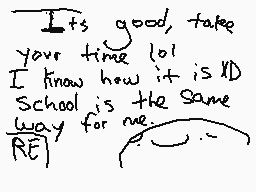 Its good, take
your time lol
I know how it is XD
School is the same
way for me.
RE